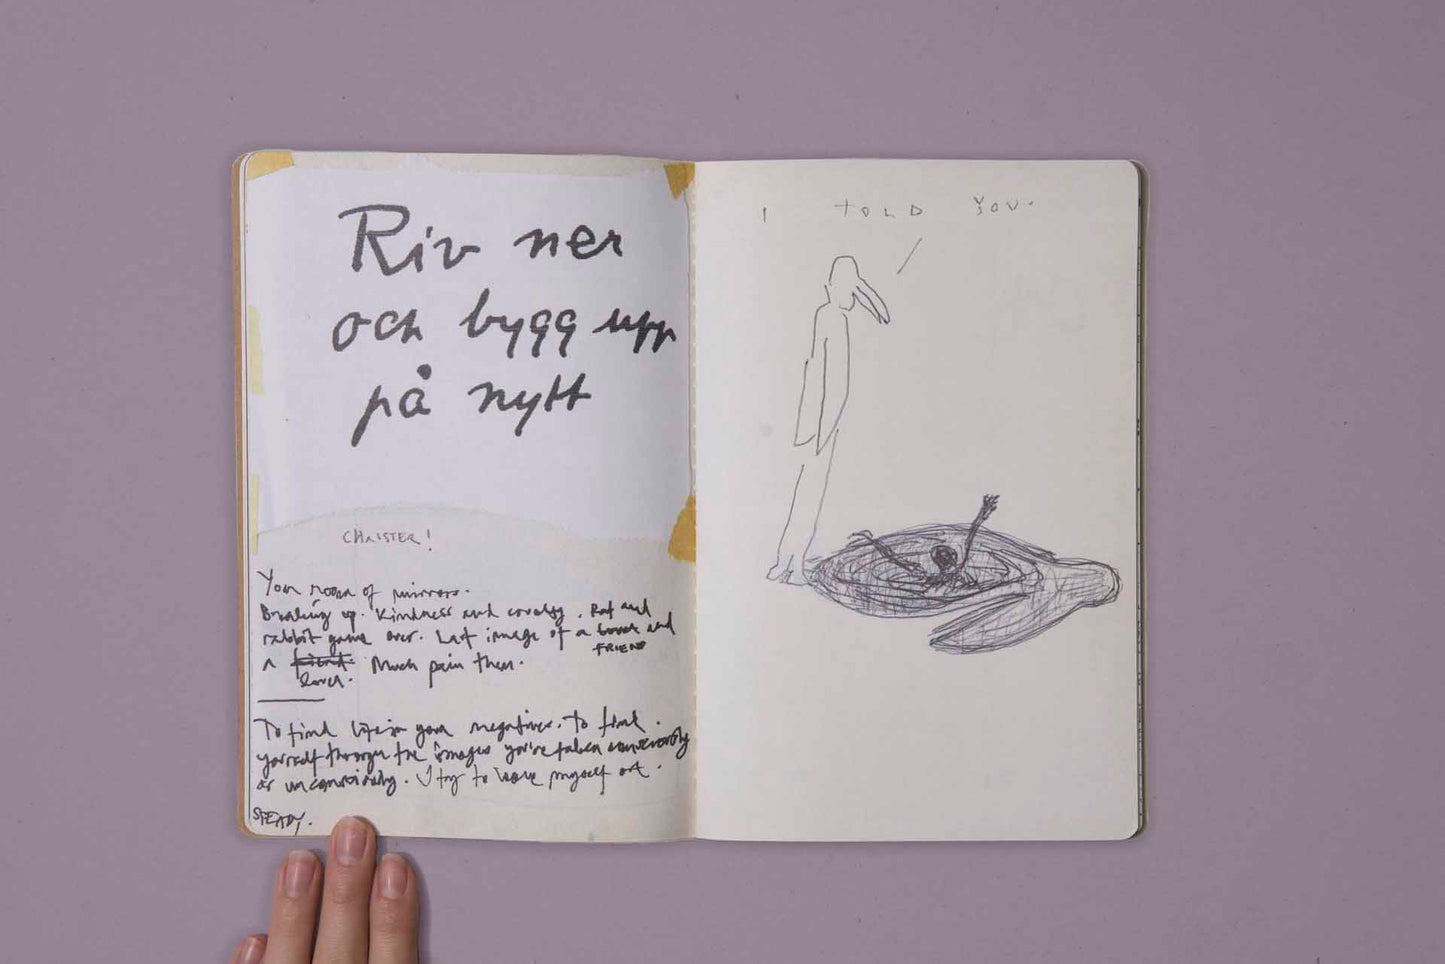 Riv ner
och bygg upp
på nytt
CHRISTER!
Your room of mirrors.
Breaking up. Kindness and cruelty. Rat and
rabbit game over. Last image of a lover and
FRIEND
a friend. Much pain there.
lover.
To find life in your negatives. To find
yourself through the images you've taken consciously
or unconsciously. I try to leave myself out.
STEADY.
I TOLD YOU.